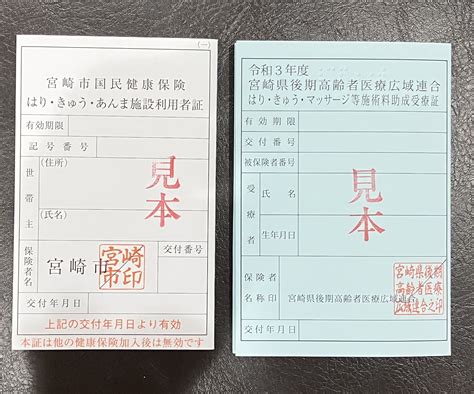 (一)
宮崎市国民健康保険
はり・きゅう・あんま施設利用者証
有効期限
記号番号
世帯主
(住所)
(氏名)
見本
保険者名
宮崎市
宮崎市印
交付番号
交付年月日
上記の交付年月日より有効
本証は他の健康保険加入後は無効です
令和3年度
宮崎県後期高齢者医療広域連合
はり・きゅう・マッサージ等施術料助成受療証
有効期限
交付番号
被保険者番号
受療者
氏名
生年月日
見本
保険者名称印
宮崎県後期高齢者医療広域連合
宮崎県後期
高齢者医療
広域連合之印
交付年月日